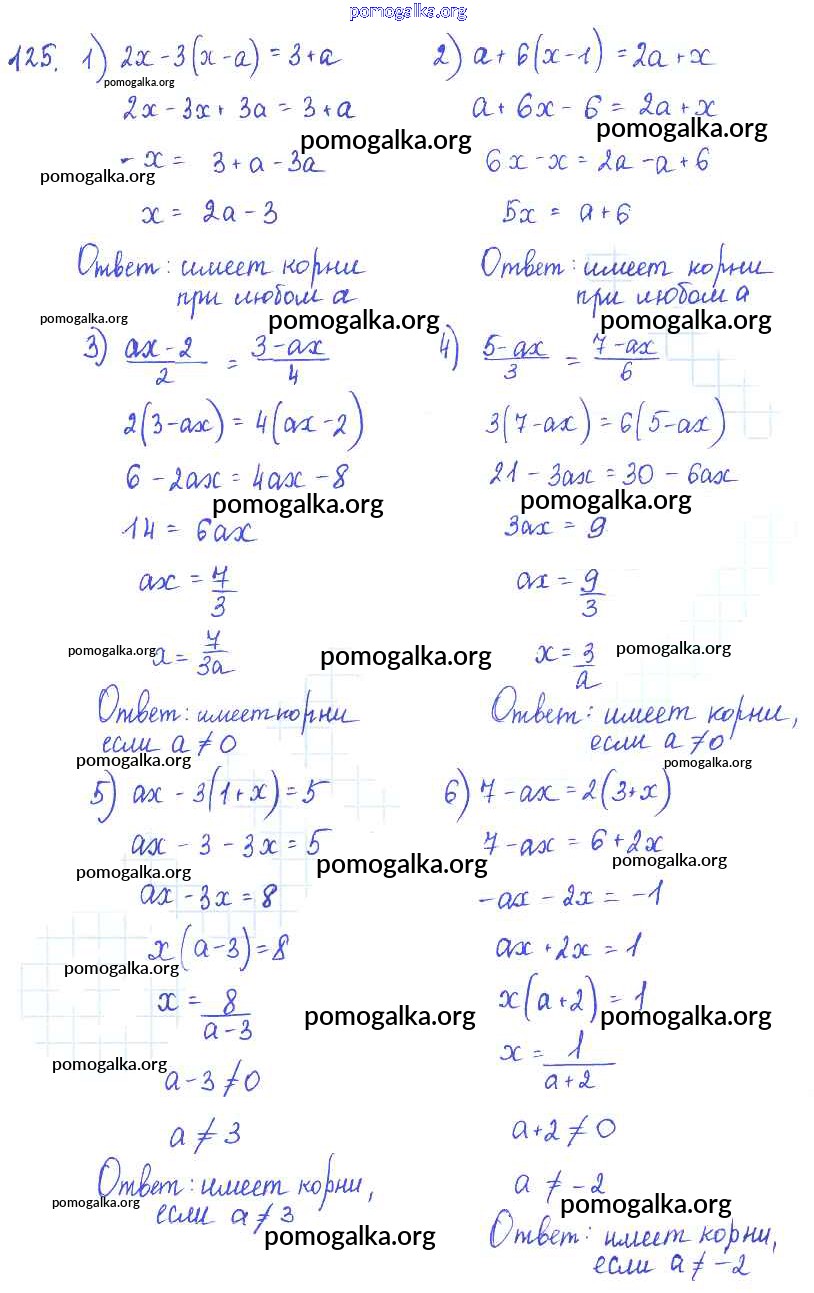 pomogalka.org
125. 1) 2x - 3(x - a) = 3 + a
pomogalka.org
2x - 3x + 3a = 3 + a
pomogalka.org
- x = 3 + a - 3a
pomogalka.org
x = 2a - 3
Ответ: имеет корни
при любом a
pomogalka.org
pomogalka.org
2) a + 6(x - 1) = 2a + x
a + 6x - 6 = 2a + x
pomogalka.org
6x - x = 2a - a + 6
5x = a + 6
Ответ: имеет корни
при любом a
pomogalka.org
3) (ax - 2)/2 = (3 - ax)/4
2(3 - ax) = 4(ax - 2)
6 - 2ax = 4ax - 8
pomogalka.org
14 = 6ax
ax = 7/3
pomogalka.org
x = 7/3a
pomogalka.org
Ответ: имеет корни
если a ≠ 0
pomogalka.org
4) (5 - ax)/3 = (7 - ax)/6
3(7 - ax) = 6(5 - ax)
21 - 3ax = 30 - 6ax
pomogalka.org
3ax = 9
ax = 9/3
x = 3/a
pomogalka.org
Ответ: имеет корни,
если a ≠ 0
pomogalka.org
5) ax - 3(1 + x) = 5
ax - 3 - 3x = 5
pomogalka.org
pomogalka.org
ax - 3x = 8
x(a - 3) = 8
pomogalka.org
x = 8/(a - 3)
pomogalka.org
pomogalka.org
a - 3 ≠ 0
a ≠ 3
Ответ: имеет корни,
pomogalka.org
если a ≠ 3
pomogalka.org
6) 7 - ax = 2(3 + x)
7 - ax = 6 + 2x
pomogalka.org
- ax - 2x = -1
ax + 2x = 1
x(a + 2) = 1
pomogalka.org
x = 1/(a + 2)
a + 2 ≠ 0
a ≠ -2
pomogalka.org
Ответ: имеет корни,
если a ≠ -2